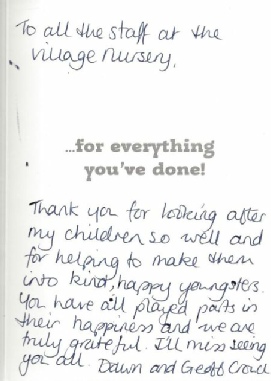 To all the staff at the
village nursery,
...for everything
you've done!
Thank you for looking after
my children so well and
for helping to make them
into kind, happy youngsters.
You have all played parts in
their happiness and we are
truly grateful. I'll miss seeing
you all. Dawn and Geoff